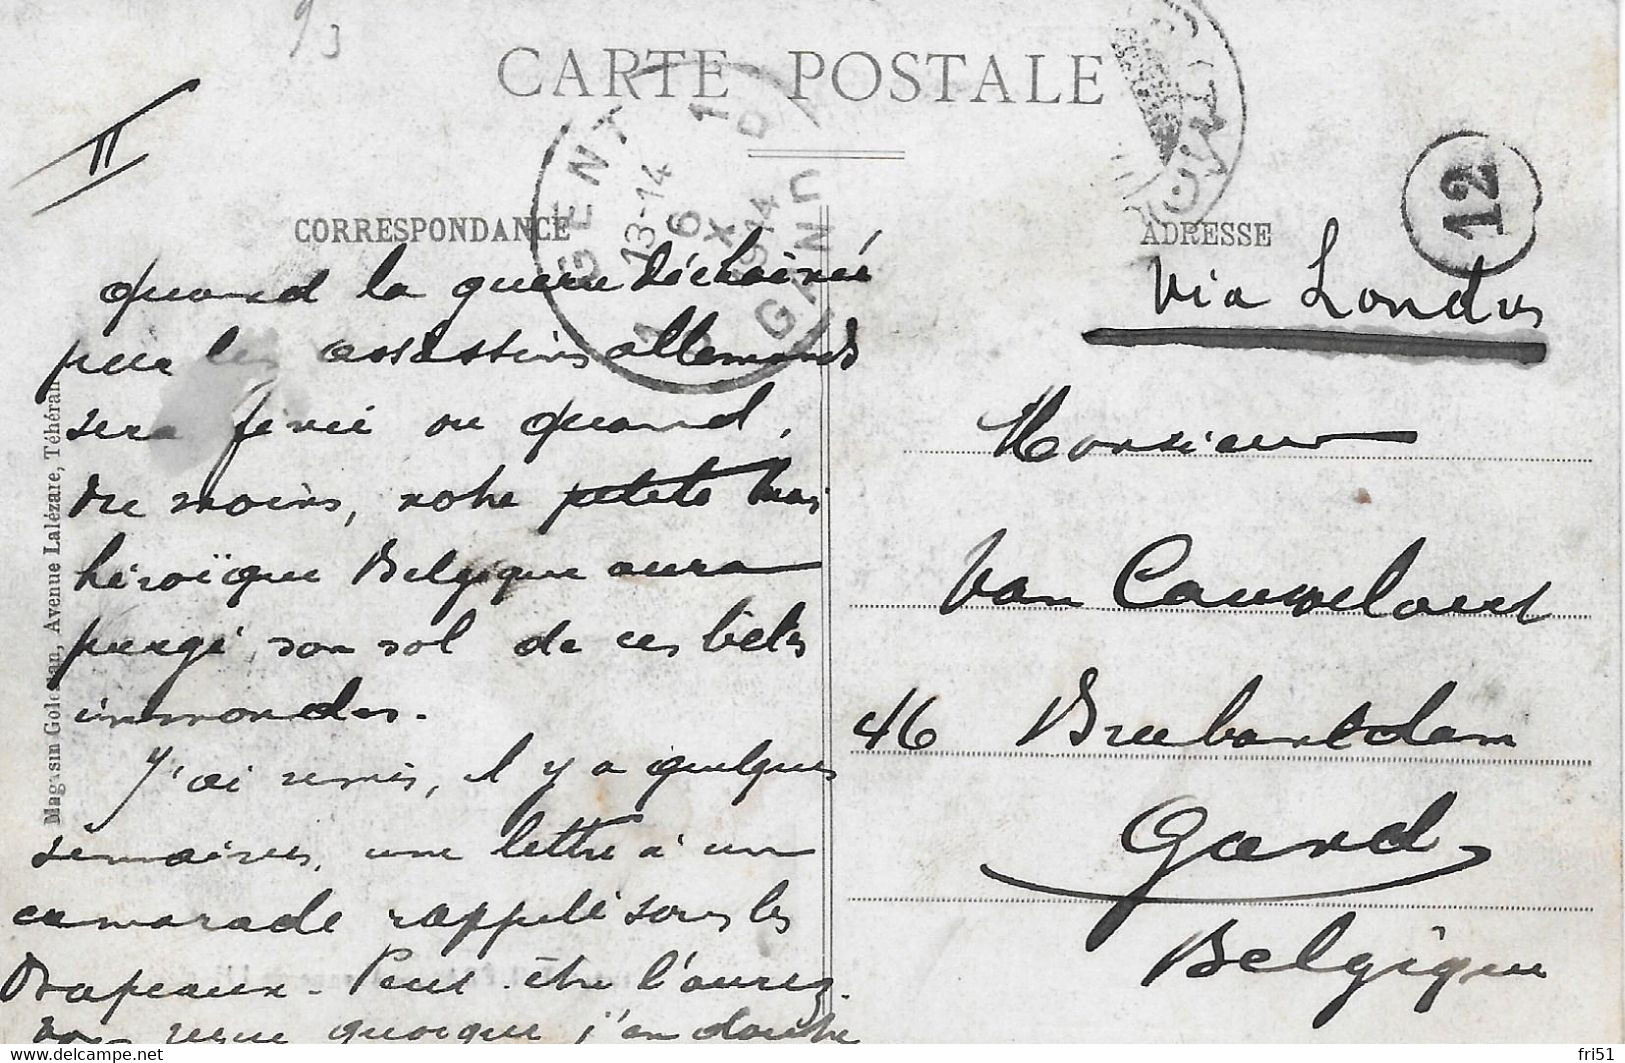 93
CARTE POSTALE
II
GENT 1
13-14
6
X
1914
D
GAND
12
CORRESPONDANCE
ADRESSE
Via Londres
quand la guerre déchainée
par les assassins allemands
sera finie ou quand,
du moins, notre petite mais
héroïque Belgique aura
purgé son sol de ces bêtes
immondes.
J'ai remis, il y a quelques
semaines, une lettre à un
camarade rappelé sous les
Drapeaux. Peut-être l'aurez
vous reçue quoique j'en doute
Monsieur
Van Cauwelaert
46 Brabantdam
Gand
Belgique
Magasin Avenue Lalézare, Téhéran
delcampe.net
fri51